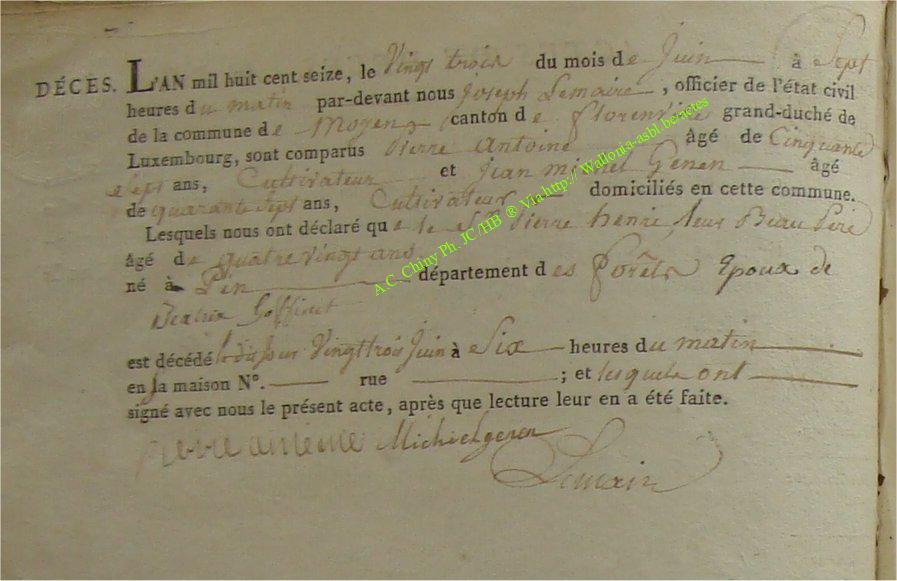 DÉCES. L'AN mil huit cent seize, le Vingt trois du mois de Juin à Sept
heures du matin par-devant nous Joseph Lemaire, officier de l'état civil
de la commune de Moyen canton de Florenville grand-duché de
Luxembourg, sont comparus Pierre Antoine âgé de Cinquante
Sept ans, Cultivateur et Jean michel Genen âgé
de quarante Sept ans, Cultivateur domiciliés en cette commune.
Lesquels nous ont déclaré que le Sr Pierre henri, leur Beau Père
âgé de quatre vingt ans
né à Pin département des Forêts Epoux de
Beatrix Goffinet
est décédé le dit jour Vingt trois Juin à Six heures du matin
en la maison N°. rue ; et lesquels ont
signé avec nous le présent acte, après que lecture leur en a été faite.
pierre antoine Michielgenen
Lemaire
A.C. Chiny Ph. JC/HB ® Via http:// Wallonia-asbl.be:actes